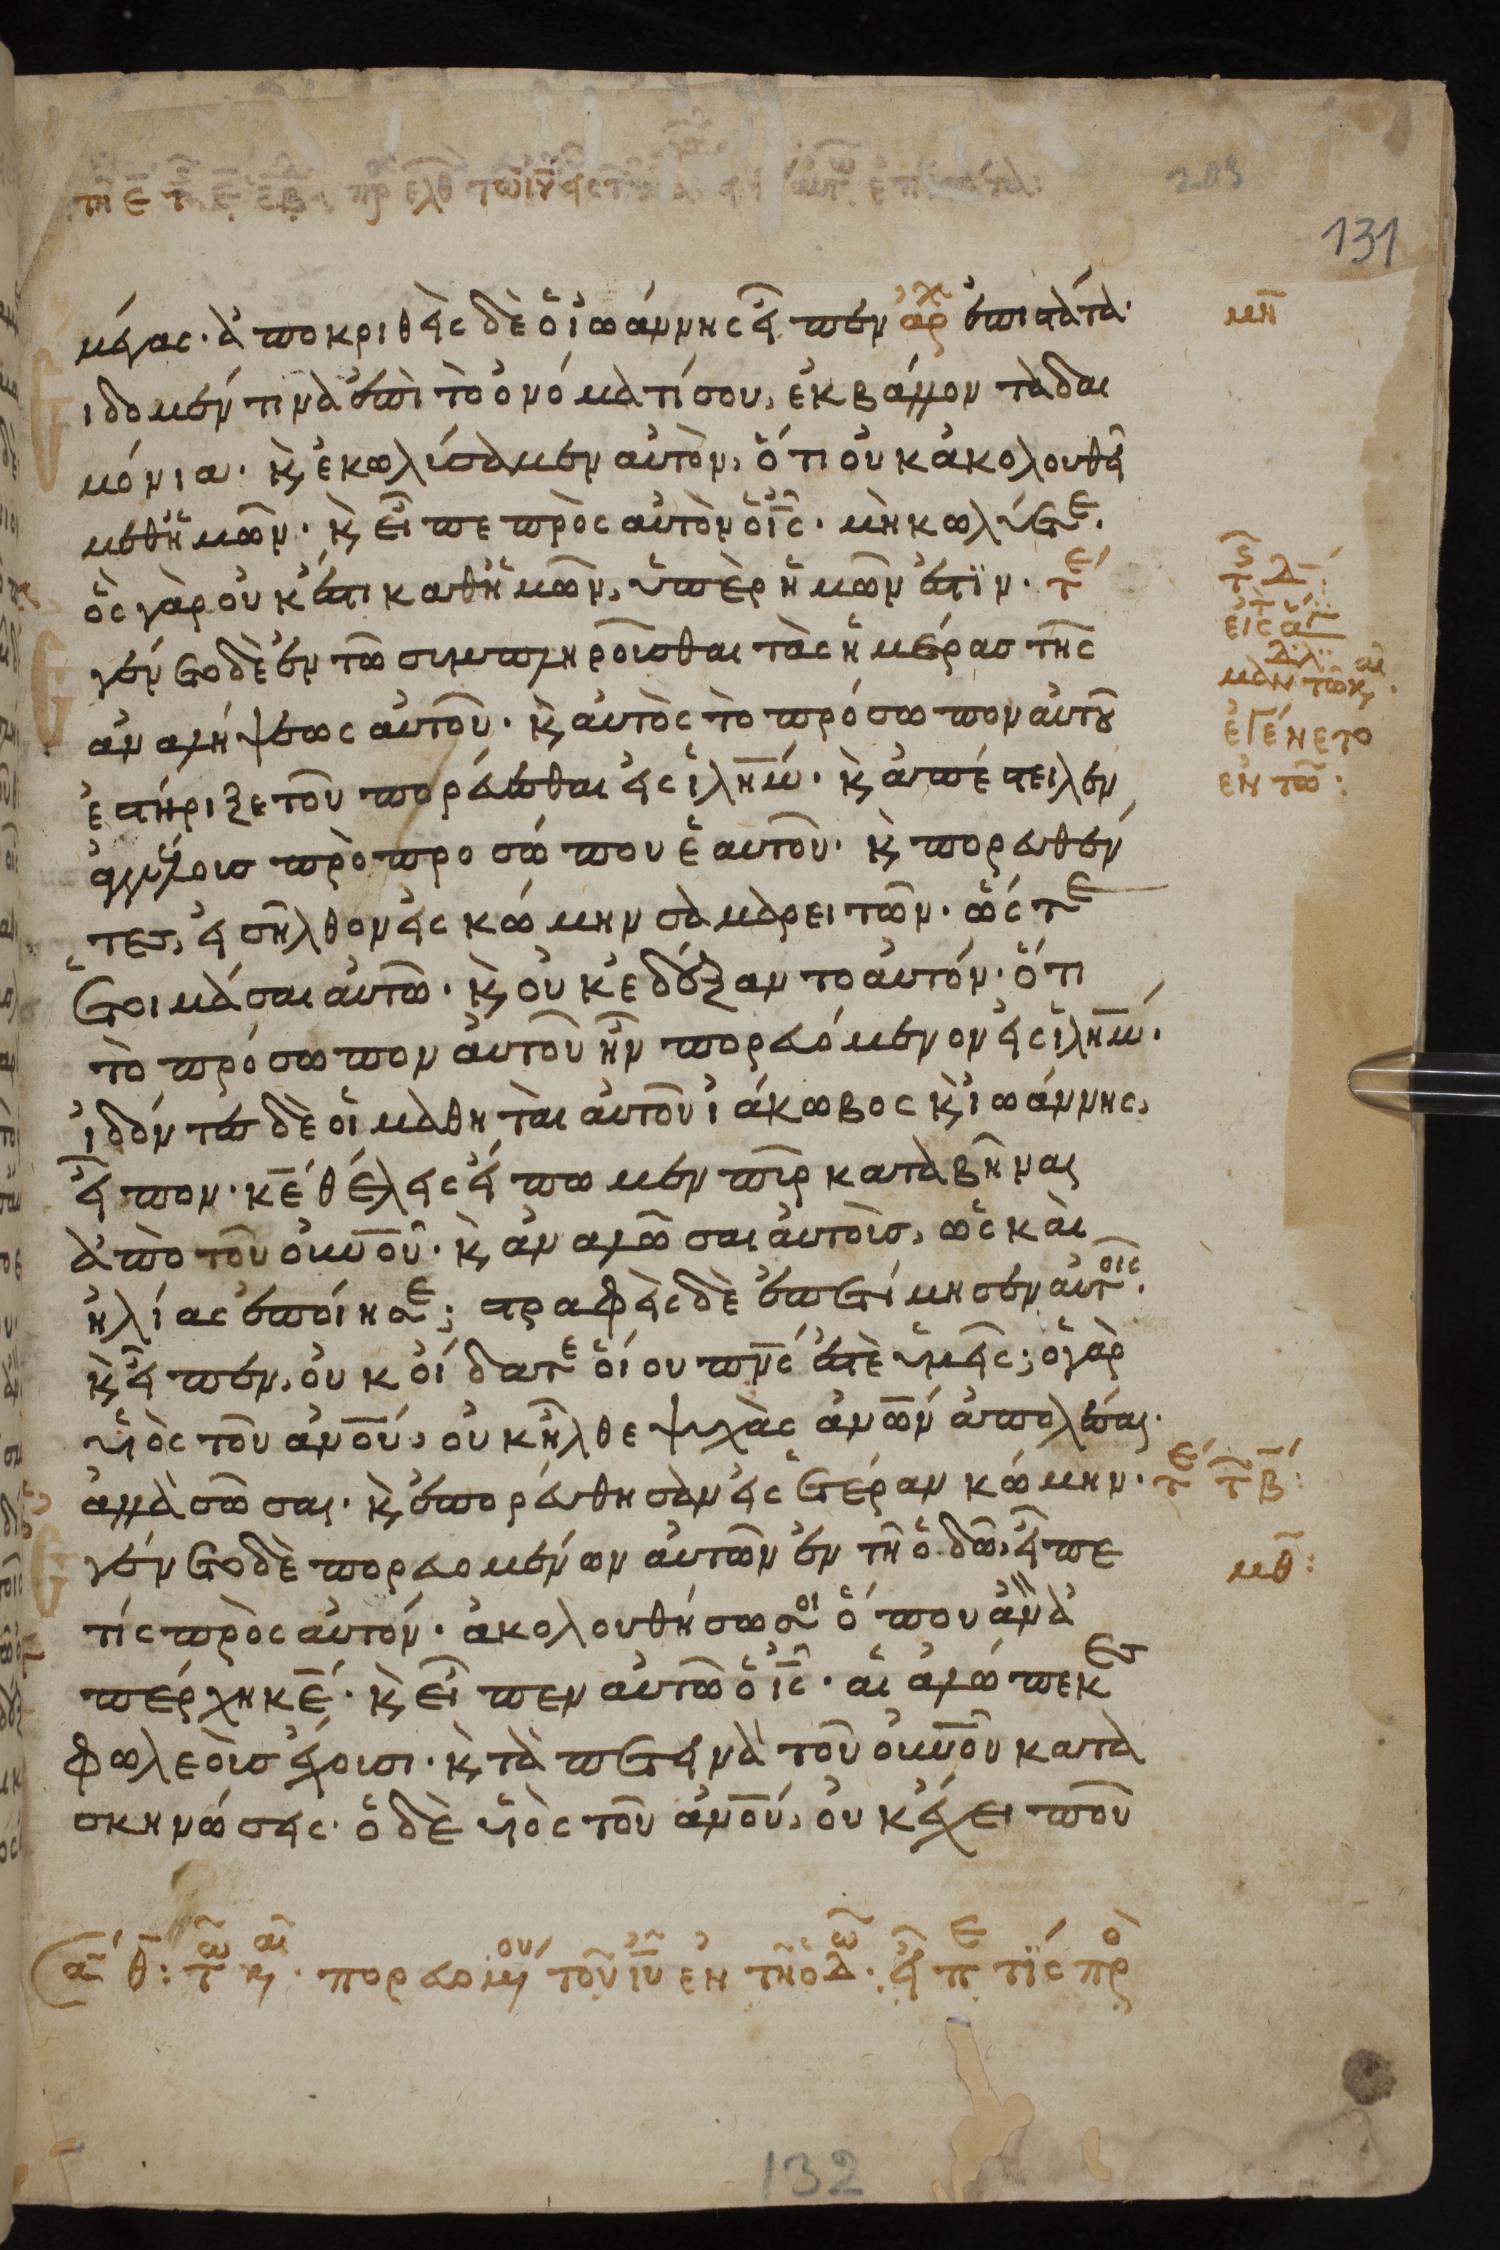 131
μέγας· ἀποκριθεὶς δὲ ὁ ἰωάννης εἶπεν ἀρχ ἐπιστάτα· μη
ἴδομέν τινὰ ἐπὶ τὸ ὀνόματί σου, ἐκβάλλον τὰ δαι
μόνια· κ, ἐκωλύσαμεν αὐτὸν, ὅτι οὐκ ἀκολουθεῖ
μεθ ἡμῶν· κ, εἶπε πρὸς αὐτὸν ὁ ις· μὴ κωλύετε·
ὃς γὰρ οὐκ ἔστι καθ ἡμῶν, ὑπὲρ ἡμῶν ἐστϊν· τε
γένετο δὲ ἐν τῶ συμπληροῦσθαι τὰς ἡμέρας τῆς
ἀναλήψεως αὐτοῦ· κ, αὐτὸς τὸ πρόσωπον αὐτου
ἐγένετο
ἐστήριξε τοῦ πορεύεσθαι εἰς ἱλημ· κ, ἀπέστειλεν
ἐν τῶ:
ἀγγέλοις πρὸ προσώπου ἑαυτοῦ· κ, πορευθέν
τες, εἰσῆλθον εἰς κώμην σαμαρειτῶν· ὥστε
ἑτοιμάσαι αὐτῶ· κ, οὐκ ἐδέξαντο αὐτόν· ὅτι
τὸ πρόσωπον αὐτοῦ ἦν πορευόμενον εἰς ἱλημ·
ἰδόντες δὲ οἱ μαθηταὶ αὐτοῦ ἰάκωβος κ, ἰωάννης,
εἶπον· κε θέλεις εἴπωμεν πῦρ καταβῆναι
ἀπὸ τοῦ οὐνοῦ· κ, ἀναλῶσαι αὐτοὺς, ὡς καὶ
ἠλίας ἐποίησε; στραφεὶς δὲ ἐπετίμησεν αὐτοῖς·
κ, εἶπεν, οὐκ οἴδατε οἵου πνς ἐστὲ ὑμεῖς; ὁ γὰρ
υἱὸς τοῦ ανου, οὐκ ἦλθε ψυχὰς ανων ἀπολέσαι·
ἀλλὰ σῶσαι· κ, ἐπορεύθησαν εἰς ἑτέραν κώμην· τε τ β:
γένετο δὲ πορευομένων αὐτῶν ἐν τῆ ὁδῶ, εἶπε μθ:
τίς πρὸς αὐτόν· ἀκολουθήσω σοι ὅπου ἂν ἀ
πέρχη κε· κ, εἶπεν αὐτῶ ὁ ις· αἱ ἀλώπεκες
φωλεοὺς ἔχουσι· κ, τὰ πετεινὰ τοῦ οὐνοῦ κατα
σκηνώσεις· ὁ δὲ υἱὸς τοῦ ανου, οὐκ ἔχει ποῦ
θ: τῶ κ, αι· πορευομένου τοῦ ιυ ἐν τῆ ὁδῶ· εἶπέ τϊς πρὸ
132